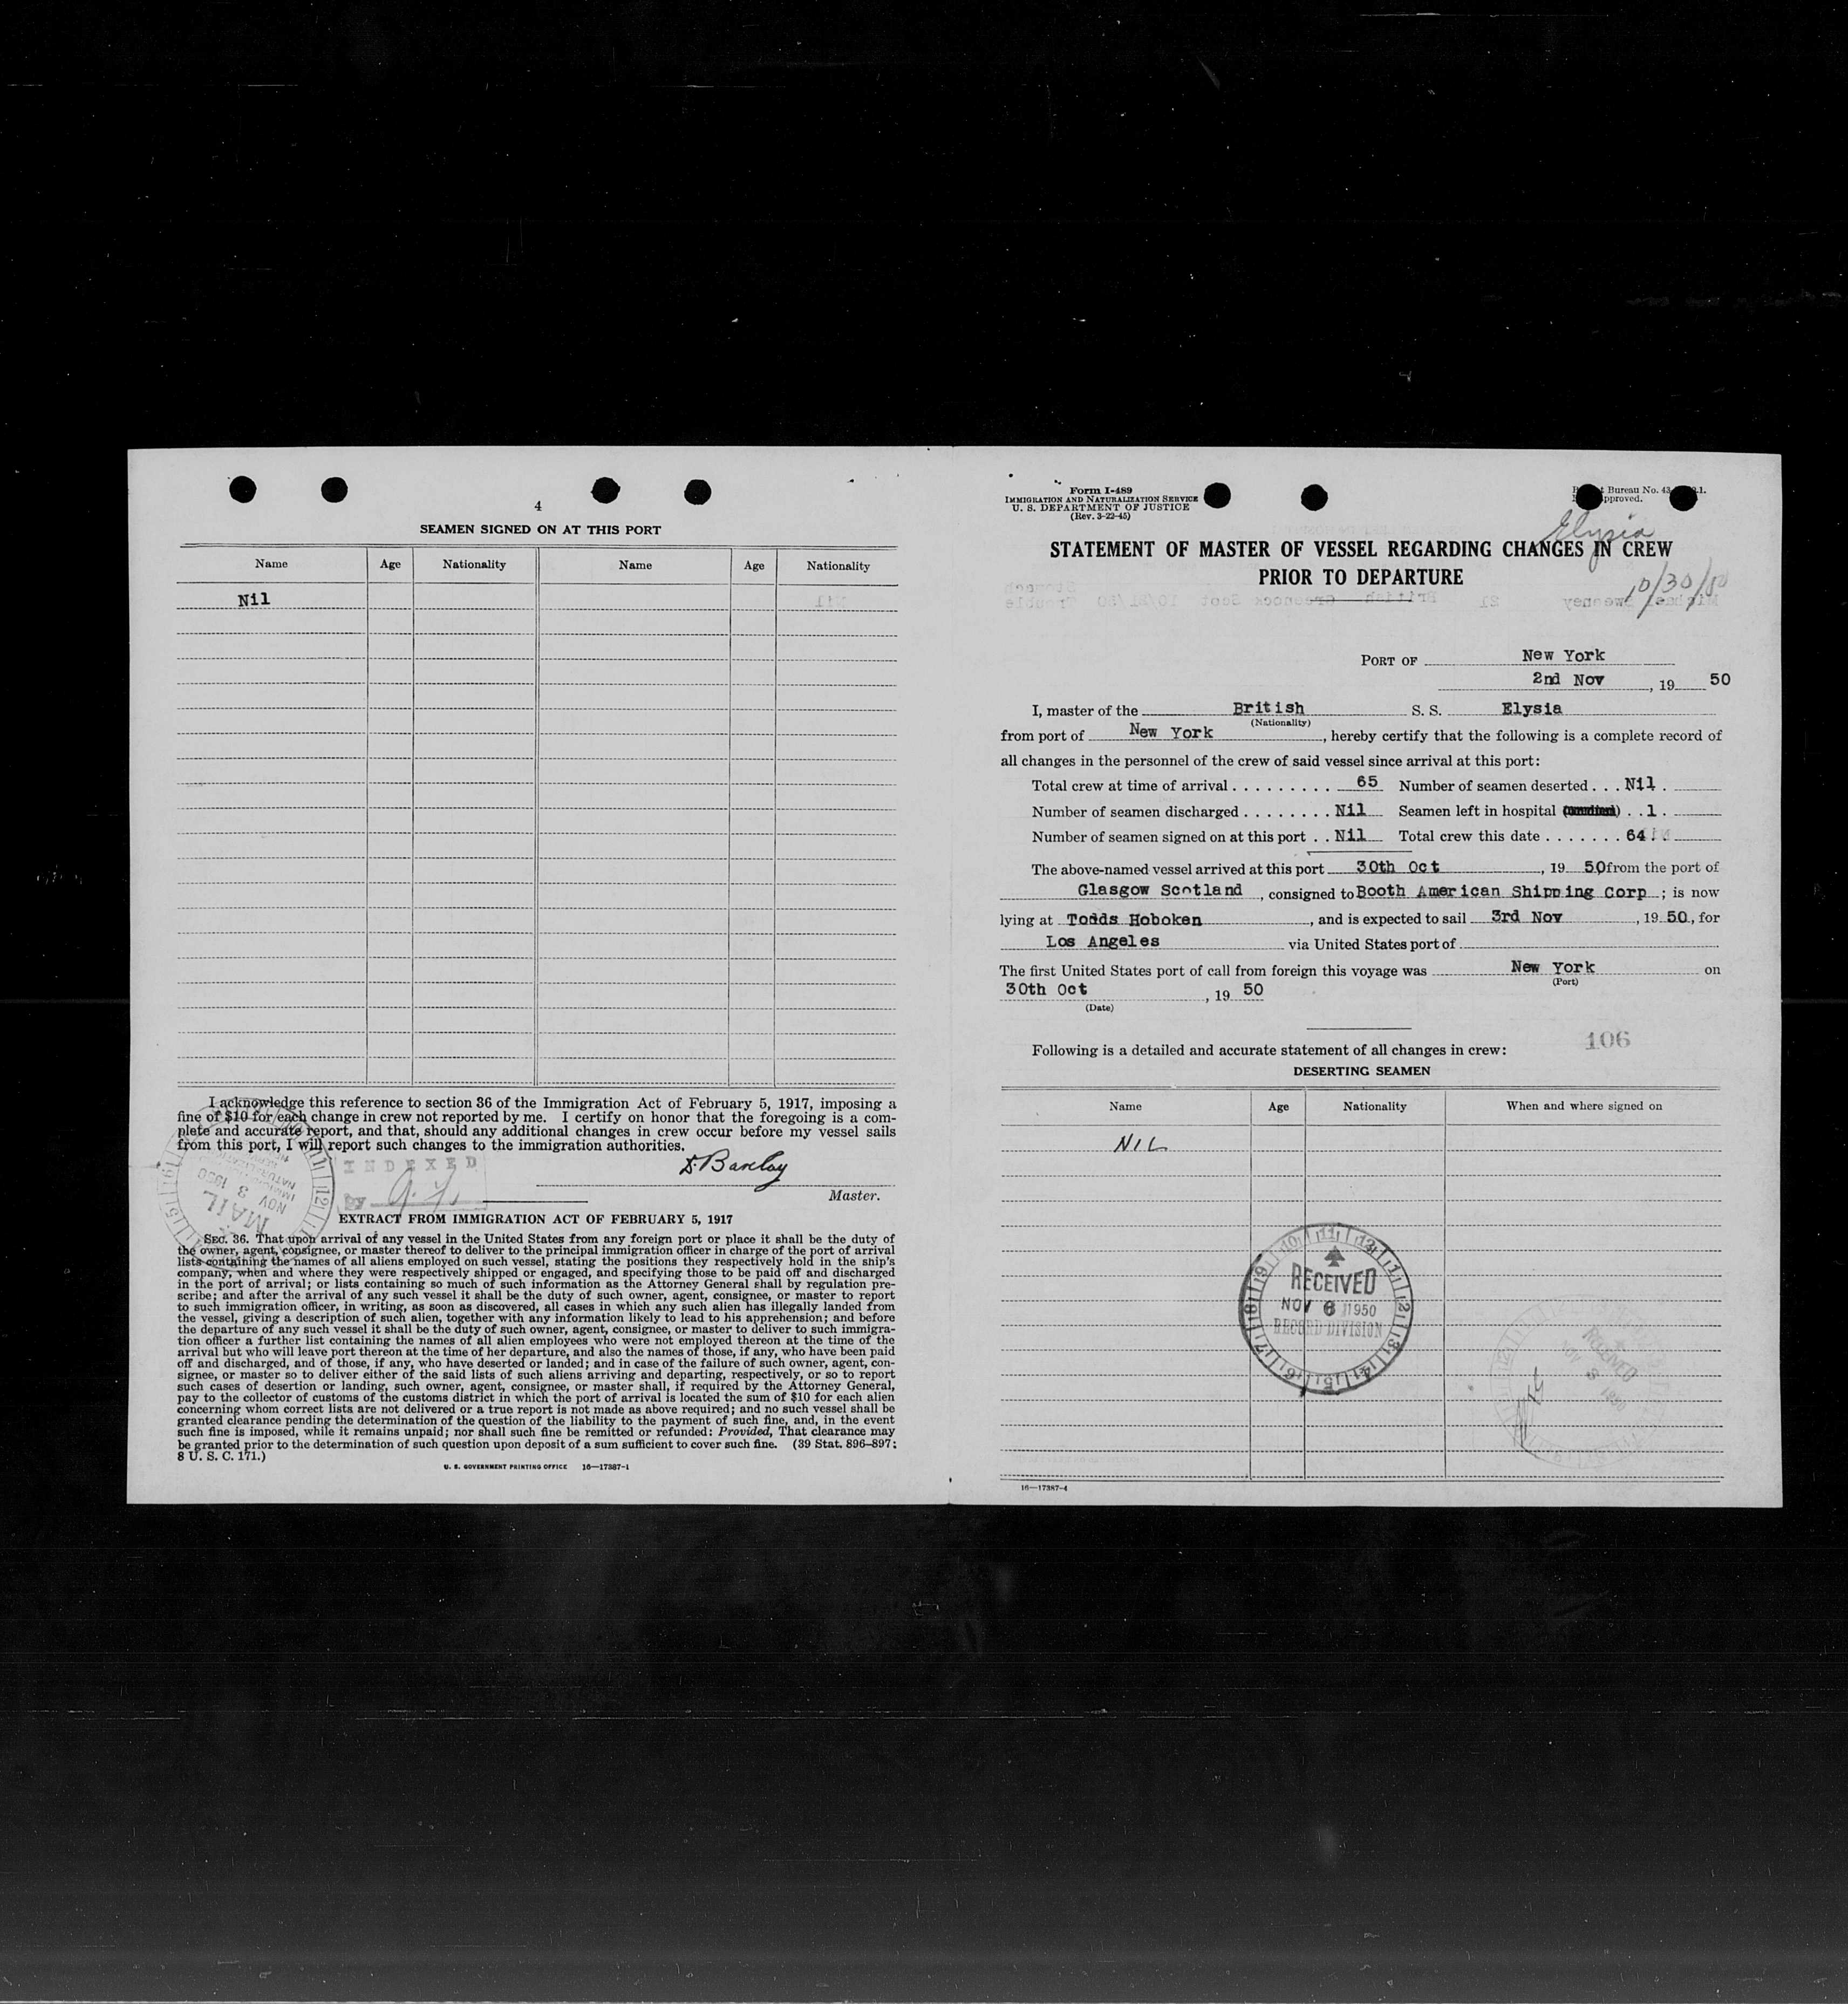 4
SEAMEN SIGNED ON AT THIS PORT
Name Age Nationality Name Age Nationality
Nil
I acknowledge this reference to section 36 of the Immigration Act of February 5, 1917, imposing a
fine of $10 for each change in crew not reported by me. I certify on honor that the foregoing is a com-
plete and accurate report, and that, should any additional changes in crew occur before my vessel sails
from this port, I will report such changes to the immigration authorities.
INDEXED
By
Barclay
Master.
MAIL
NOV 3 1950
EXTRACT FROM IMMIGRATION ACT OF FEBRUARY 5, 1917
SEC. 36. That upon arrival of any vessel in the United States from any foreign port or place it shall be the duty of
the owner, agent, consignee, or master thereof to deliver to the principal immigration officer in charge of the port of arrival
lists containing the names of all aliens employed on such vessel, stating the positions they respectively hold in the ship's
company, when and where they were respectively shipped or engaged, and specifying those to be paid off and discharged
in the port of arrival; or lists containing so much of such information as the Attorney General shall by regulation pre-
scribe; and after the arrival of any such vessel it shall be the duty of such owner, agent, consignee, or master to report
to such immigration officer, in writing, as soon as discovered, all cases in which any such alien has illegally landed from
the vessel, giving a description of such alien, together with any information likely to lead to his apprehension; and before
the departure of any such vessel it shall be the duty of such owner, agent, consignee, or master to deliver to such immigra-
tion officer a further list containing the names of all alien employees who were not employed thereon at the time of the
arrival but who will leave port thereon at the time of her departure, and also the names of those, if any, who have been paid
off and discharged, and of those, if any, who have deserted or landed; and in case of the failure of such owner, agent, con-
signee, or master so to deliver either of the said lists of such aliens arriving and departing, respectively, or so to report
such cases of desertion or landing, such owner, agent, consignee, or master shall, if required by the Attorney General,
pay to the collector of customs of the customs district in which the port of arrival is located the sum of $10 for each alien
concerning whom correct lists are not delivered or a true report is not made as above required; and no such vessel shall be
granted clearance pending the determination of the question of the liability to the payment of such fine, and, in the event
such fine is imposed, while it remains unpaid; nor shall such fine be remitted or refunded: Provided, That clearance may
be granted prior to the determination of such question upon deposit of a sum sufficient to cover such fine. (39 Stat. 896–897;
8 U. S. C. 171.)
U. S. GOVERNMENT PRINTING OFFICE 16—17387-1
Form I-489
IMMIGRATION AND NATURALIZATION SERVICE
U. S. DEPARTMENT OF JUSTICE
(Rev. 3-22-45)
Bureau No. 43
Elysia
STATEMENT OF MASTER OF VESSEL REGARDING CHANGES IN CREW
PRIOR TO DEPARTURE
10/30/50
PORT OF New York
2nd Nov, 19 50
I, master of the British S. S. Elysia
(Nationality)
from port of New York, hereby certify that the following is a complete record of
all changes in the personnel of the crew of said vessel since arrival at this port:
Total crew at time of arrival 65 Number of seamen deserted Nil
Number of seamen discharged Nil Seamen left in hospital 1
Number of seamen signed on at this port Nil Total crew this date 64
The above-named vessel arrived at this port 30th Oct, 19 50 from the port of
Glasgow Scotland, consigned to Booth American Shipping Corp; is now
lying at Todds Hoboken, and is expected to sail 3rd Nov, 19 50, for
Los Angeles via United States port of
The first United States port of call from foreign this voyage was New York on
(Port)
30th Oct, 19 50
(Date)
106
Following is a detailed and accurate statement of all changes in crew:
DESERTING SEAMEN
Name Age Nationality When and where signed on
NIL
RECEIVED
NOV 6 1950
RECORD DIVISION
RECEIVED
16—17387-4